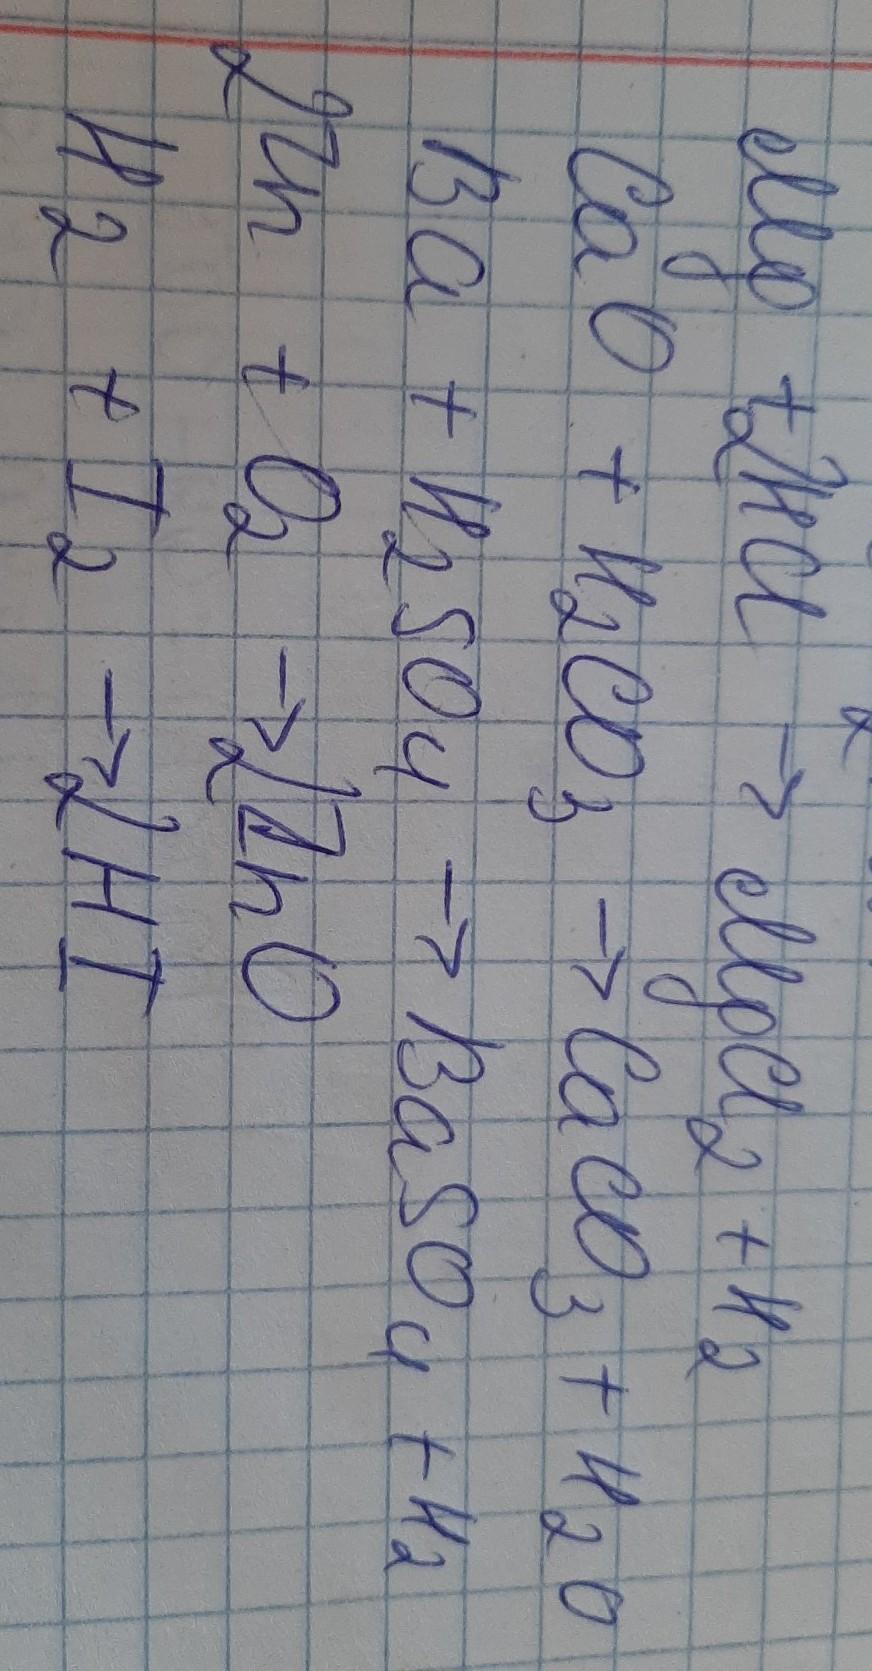 Mg + 2HCl → MgCl₂ + H₂
CaO + H₂CO₃ → CaCO₃ + H₂O
Ba + H₂SO₄ → BaSO₄ + H₂
2Zn + O₂ → 2ZnO
H₂ + I₂ → 2HI